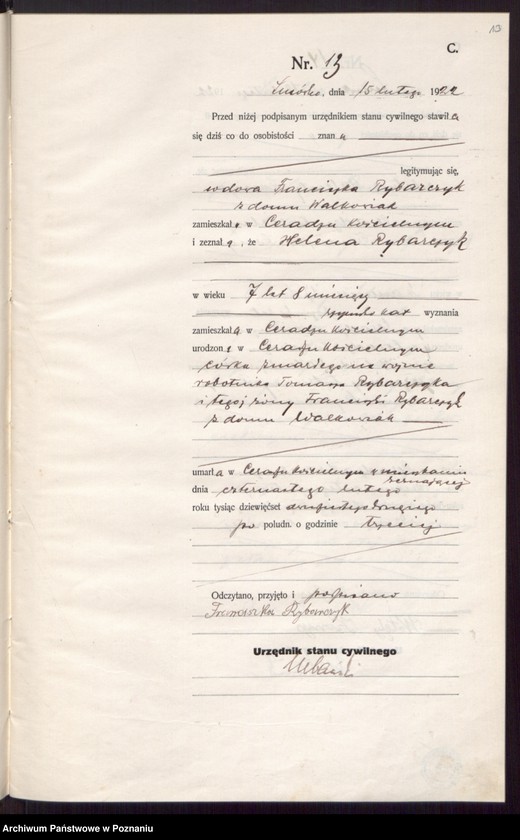 13
C.
Nr. 13
Lusówko, dnia 15 lutego 1922
Przed niżej podpisanym urzędnikiem stanu cywilnego stawiła
się dziś co do osobistości znana
legitymując się,
wdowa Franciszka Rybarczyk
z domu Walkowiak
zamieszkała w Ceradzu kościelnym
i zeznała, że Helena Rybarczyk
w wieku 7 lat 8 miesięcy
rzymsko kat wyznania
zamieszkała w Ceradzu kościelnym
urodzona w Ceradzu kościelnym
córka zmarłego na wojnie
robotnika Tomasza Rybarczyka
i tegoż żony Franciszki Rybarczyk
z domu Walkowiak
umarła w Ceradzu kościelnym w mieszkaniu
zeznającej
dnia czternastego lutego
roku tysiąc dziewięćset dwudziestego drugiego
po połudn. o godzinie trzeciej
Odczytano, przyjęto i podpisano
Franciszka Rybarczyk
Urzędnik stanu cywilnego
Archiwum Państwowe w Poznaniu